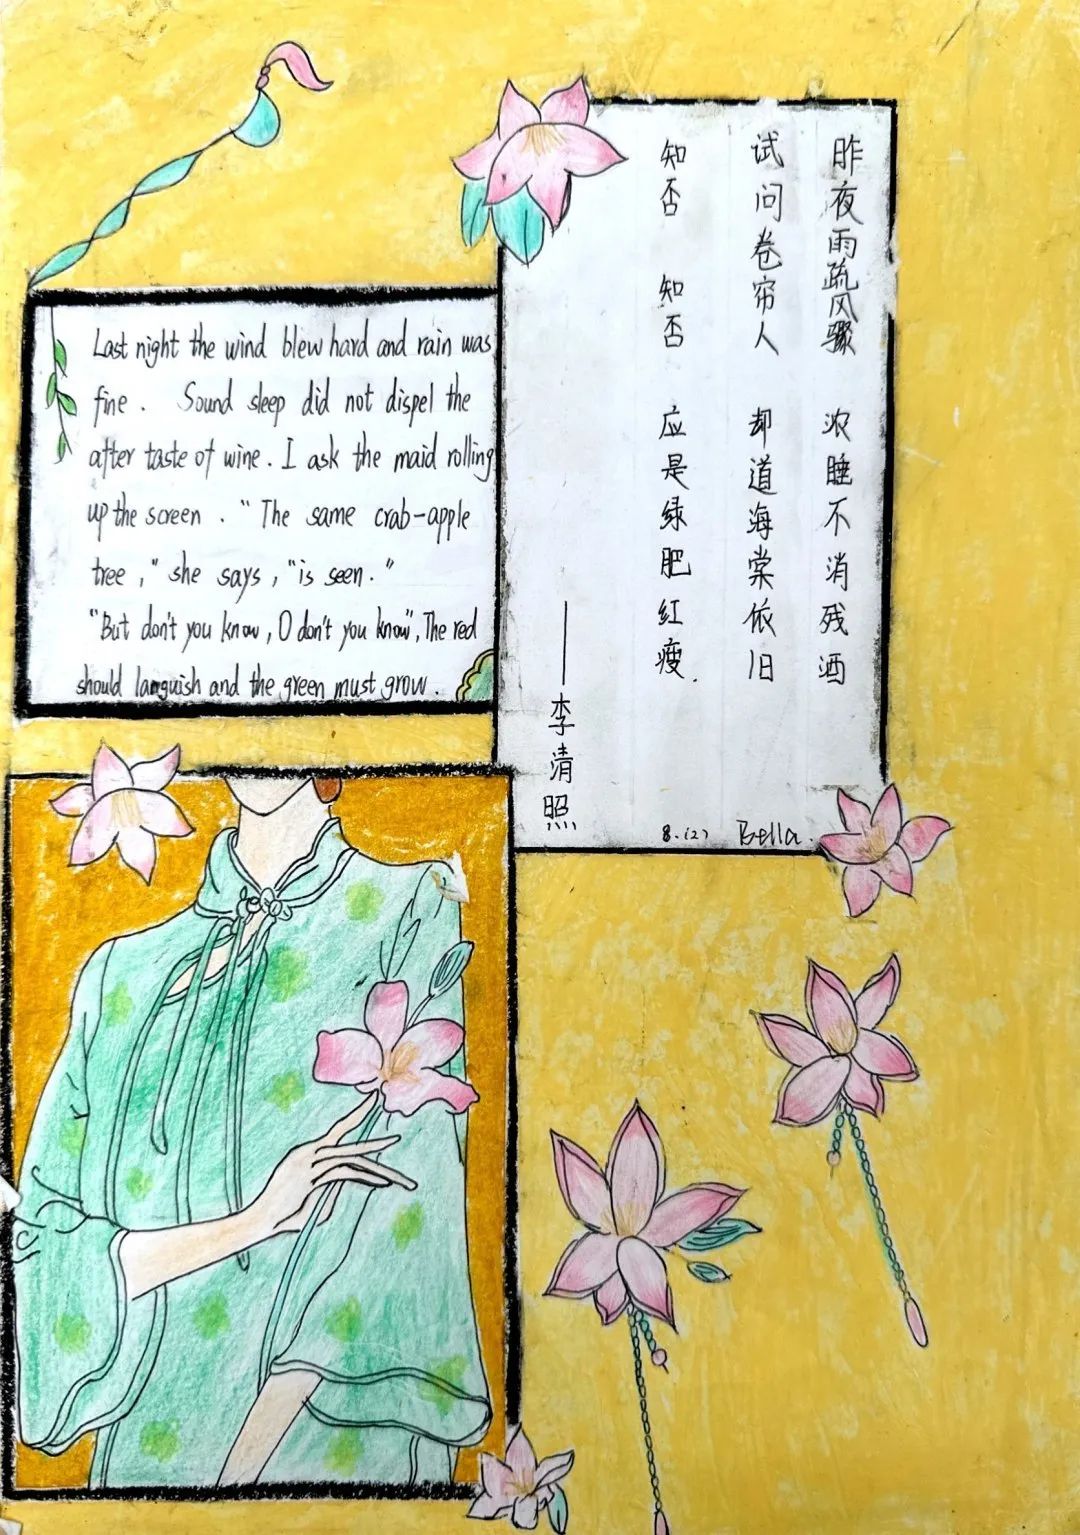 Last night the wind blew hard and rain was
fine. Sound sleep did not dispel the
after taste of wine. I ask the maid rolling
up the screen. "The same crab-apple
tree," she says, "is seen."
"But don't you know, O don't you know", The red
should languish and the green must grow.
昨夜雨疏风骤 浓睡不消残酒
试问卷帘人 却道海棠依旧
知否 知否 应是绿肥红瘦.
——李清照
Bella.